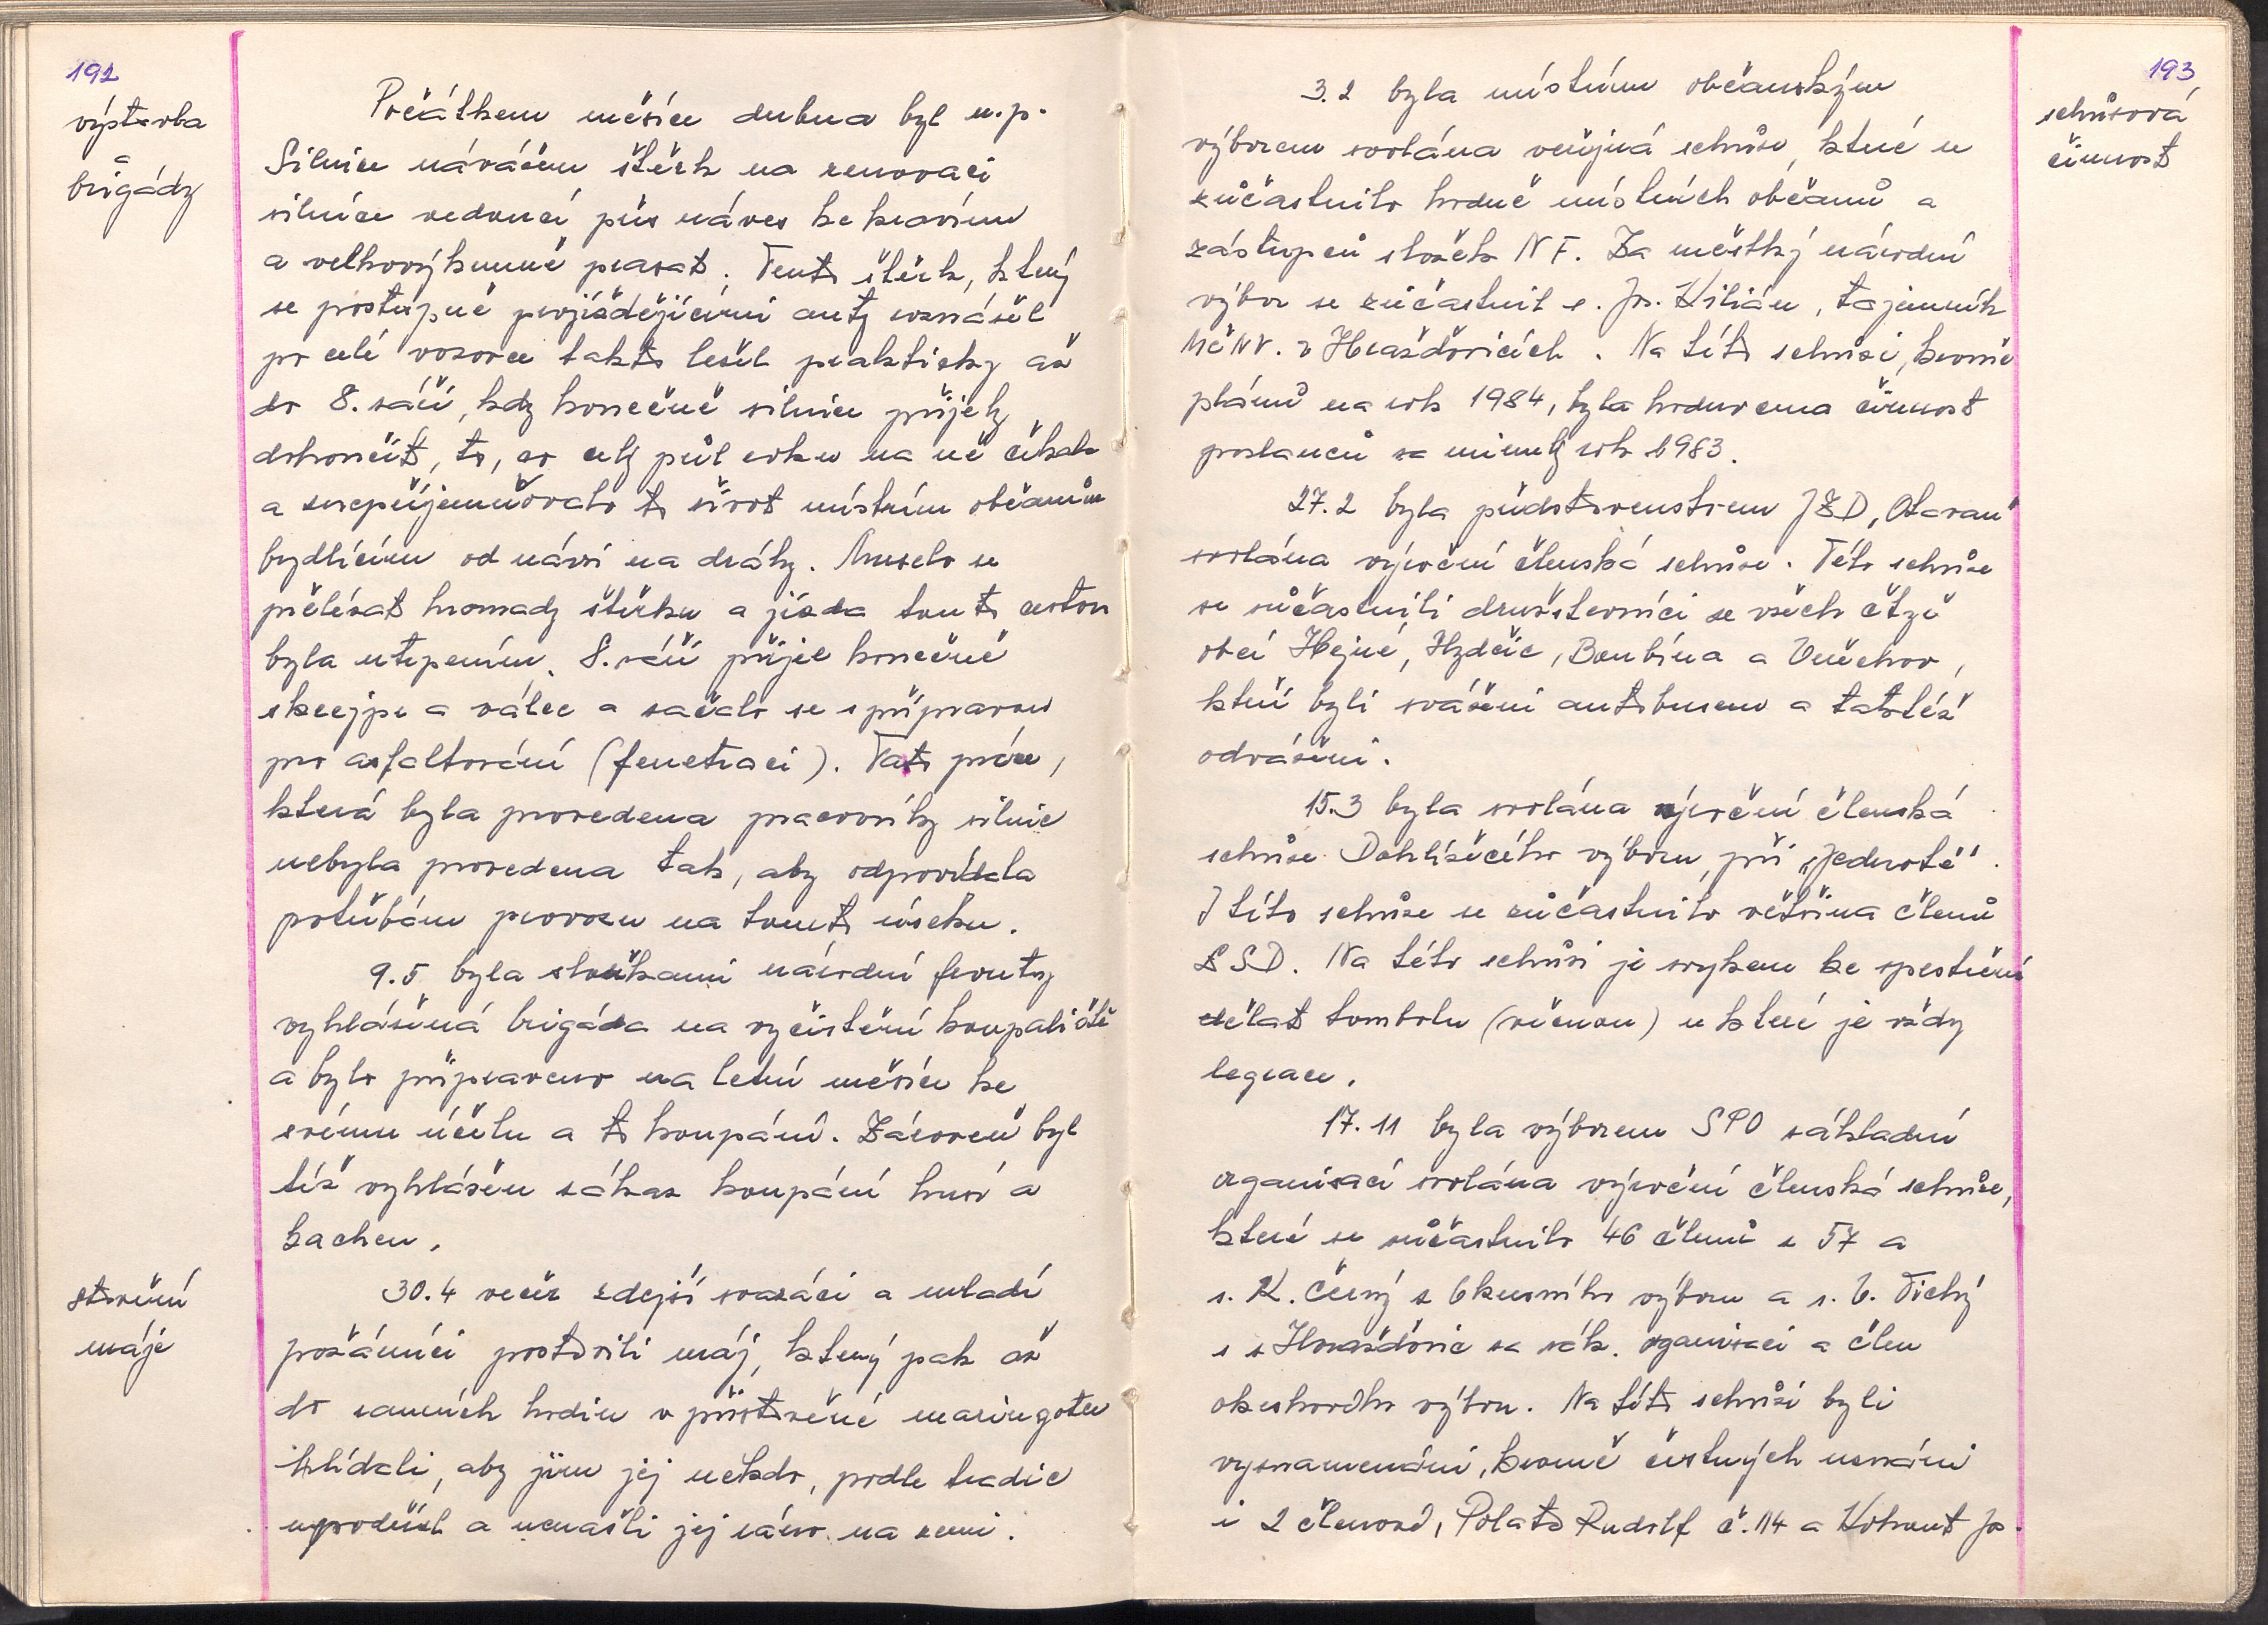 192
výstavba
a
brigády
Počátkem měsíce dubna byl n.p.
Silnice navážen štěrk na renovaci
silnice vedoucí přes náves ke kravínu
a velkovýkrmně prasat. Tento štěrk, který
se postupně projíždějícími auty roznášel
po celé vozovce takto ležel prakticky až
do 8. září, kdy konečně silnice přijely
dokončit, to, co celý půl roku na ně čekalo
a znepříjemňovalo to život místním občanům
bydlícím od návsi na dráhy. Muselo se
přelézat hromady štěrku a jízda touto cestou
byla utrpením. 8. září přijel konečně
skrejpr a válec a začalo se s přípravou
pro asfaltování (fenetraci). Tato práce,
která byla provedena pracovníky silnic
nebyla provedena tak, aby odpovídala
potřebám provozu na tomto úseku.
9.5 byla složkami národní fronty
vyhlášená brigáda na vyčistění koupaliště
a bylo připraveno na letní měsíce ke
svému účelu a to koupání. Zároveň byl
též vyhlášen zákaz koupání husí a
kachen.
stavění
máje
30.4 večer zdejší svazáci a mladí
požárníci postavili máj, který pak až
do ranních hodin v přistavěné maringotce
hlídali, aby jim jej nekdo, podle tradic
nepodřízl a nenašli jej ráno na zemi.
193
schůzová
činnost
3.2 byla místním občanským
výborem svolána veřejná schůze, které se
zúčastnilo hodně místních občanů a
zástupců složek NF. Za městký národní
výbor se zúčastnil s. Jos. Kilián, tajemník
MěNV. v Horažďovicích. Na této schůzi, kromě
plánů na rok 1984, byla hodnocena činnost
poslanců za minulý rok 1983.
27.2 byla představenstvem JZD "Otavan"
svolána výroční členská schůze. Této schůze
se zúčastnili družstevníci ze všech čtyř
obcí Hejné, Hydčic, Boubína a Veřechov,
kteří byli sváženi autobusem a taktéž
odváženi.
15.3 byla svolána výroční členská
schůze Dohlížecího výboru, při "Jednotě".
I této schůze se zúčastnilo většina členů
LSD. Na této schůzi je zvykem ke zpestření
dělat tombolu (věcnou) u které je vždy
legrace.
17.11 byla výborem SPO základní
organisací svolána výroční členská schůze,
které se zúčastnilo 46 členů z 57 a
s. K. Černý z Okresního výboru a s. V. Tichý
s z Horažďovic za zák. organisaci a člen
okrskového výboru. Na této schůzi byli
vyznamenáni, kromě čestných uznání
i 2 členové, Polata Rudolf č. 114 a Kohout Jos.